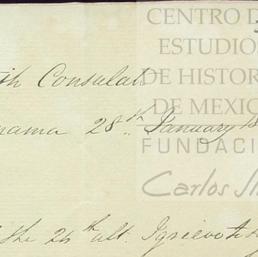 CENTRO D
ESTUDIO
DE HISTOR
DE MEXIC
FUNDACI
Carlos Sl
th Consulate
nama 28th January 18
the 26th ult. I grieve to